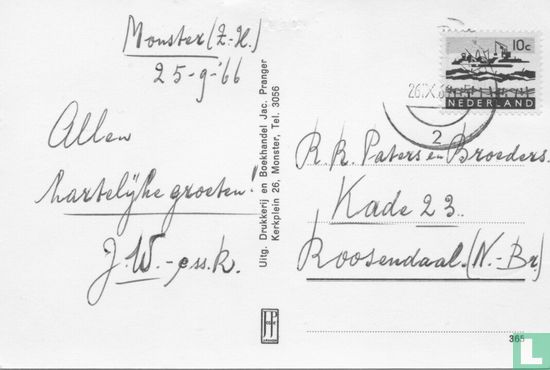 Monster (Z.-H.)
25-9-'66
Allen
hartelijke groeten!
J.W.-
Uitg. Drukkerij en Boekhandel Jac. Pranger
Kerkplein 26, Monster, Tel. 3056
10c
NEDERLAND
26.IX.
2
R.K. Paters en Broeders.
Kade 23.
Roosendaal. (N.-Br.)
JP
365